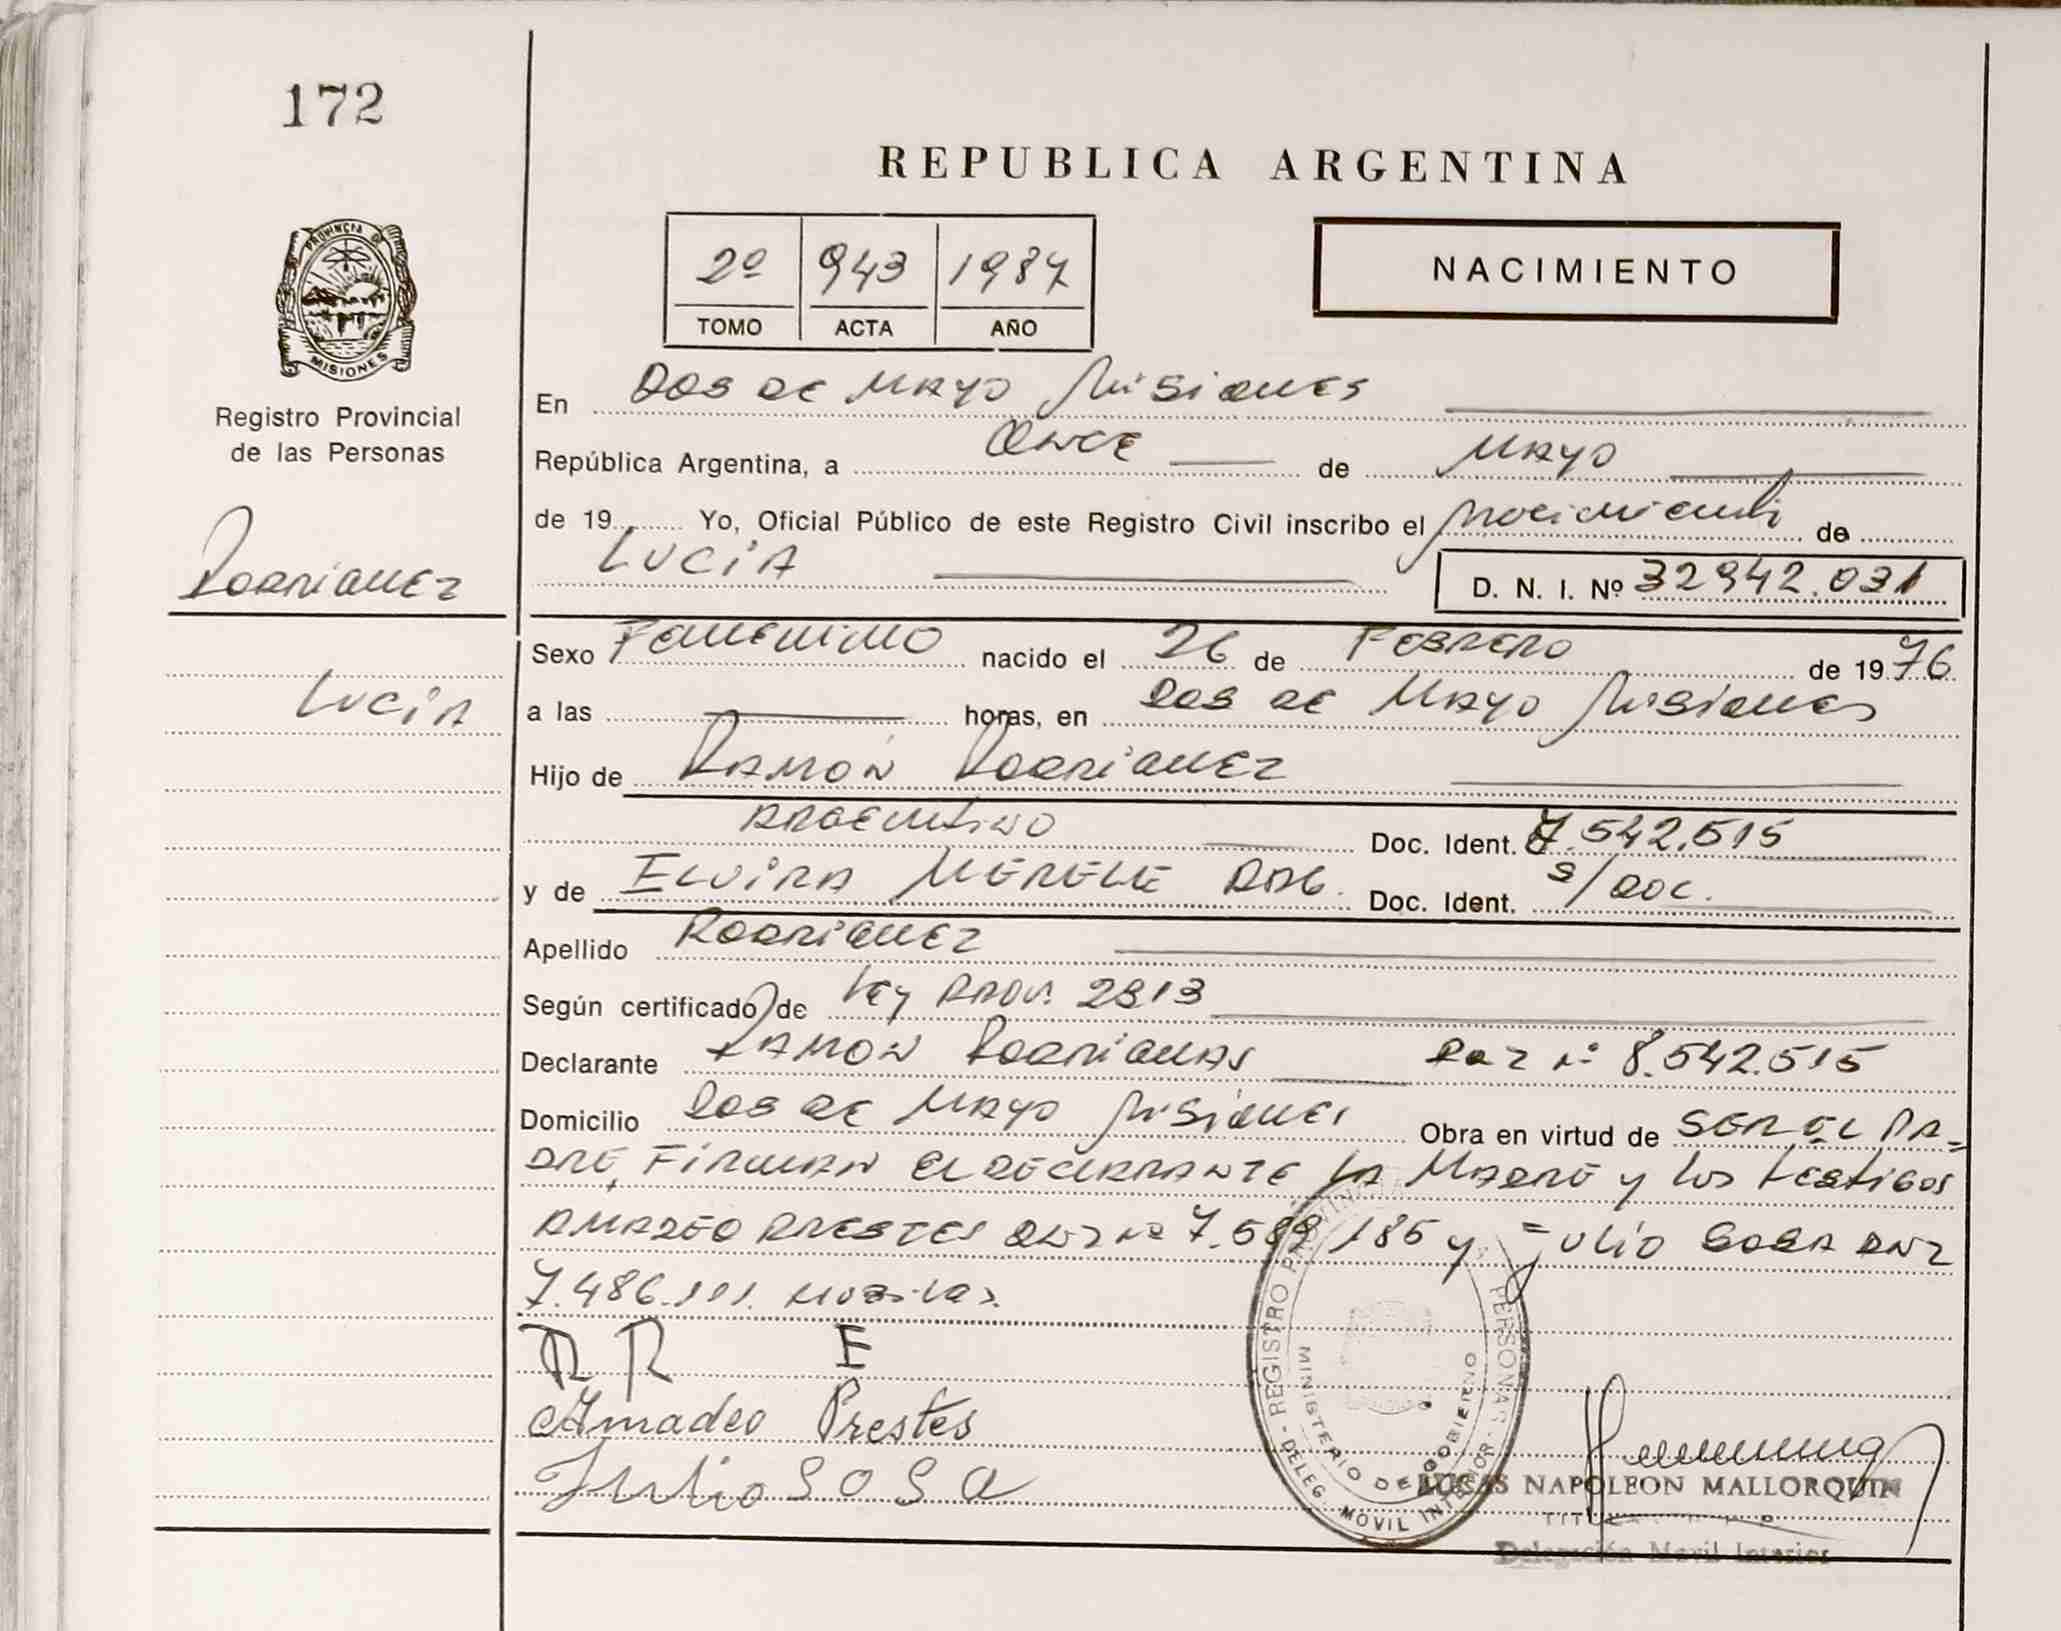 172
REPUBLICA ARGENTINA
PROVINCIA DE MISIONES
2º 943 1987
TOMO ACTA AÑO
NACIMIENTO
Registro Provincial
de las Personas
Rodriguez
Lucia
En Dos de Mayo Misiones
República Argentina, a once de Mayo
de 19 Yo, Oficial Público de este Registro Civil inscribo el nacimiento de
Lucia D. N. I. Nº 32942.031
Sexo Femenino nacido el 26 de Febrero de 1976
a las horas, en Dos de Mayo Misiones
Hijo de Ramón Rodriguez
Argentino Doc. Ident. 542.515
y de Elvira Doc. Ident. s/doc.
Apellido Rodriguez
Según certificado de Ley Prov. 2813
Declarante Ramon Rodriguez Nº 8.542.515
Domicilio Dos de Mayo Misiones Obra en virtud de ser el pa-
dre, Firman el declarante la Madre y los testigos
Amadeo Prestes DNI Nº 7.589 185 y Julio Sosa DNI
7.486.
R R E
Amadeo Prestes
Julio Sosa
REGISTRO PERSONAS - DELEG. MOVIL INTERIOR -
MINISTERIO DE GOBIERNO
LUCAS NAPOLEON MALLORQUIN
Delegación Movil Interior